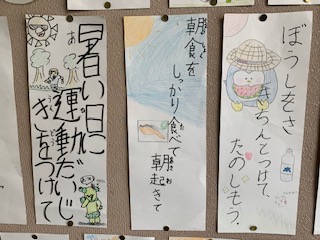 ぼうしをき
ちんとつけて、
たのしもう。
水
朝食を
しっかり食べて
朝起きて
暑い日に
運動だいじ
きをつけて